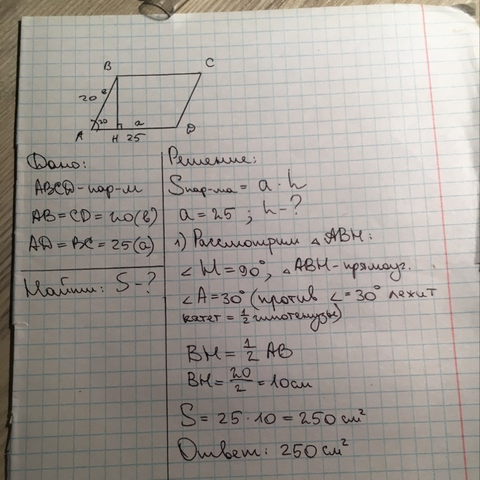 B
C
20
в
A
30
H
a
25
D
Дано:
ABCD - пар-м
AB = CD = 20 (в)
AD = BC = 25 (a)
Найти: S - ?
Решение:
Sпар-ма = a · h
a = 25 ; h - ?
1) Рассмотрим △ABH:
∠H = 90°, △ABH - прямоуг.
∠A = 30° (против ∠ = 30° лежит
катет = 1/2 гипотенузы)
BH = 1/2 AB
BH = 20/2 = 10 см
S = 25 · 10 = 250 см²
Ответ: 250 см²